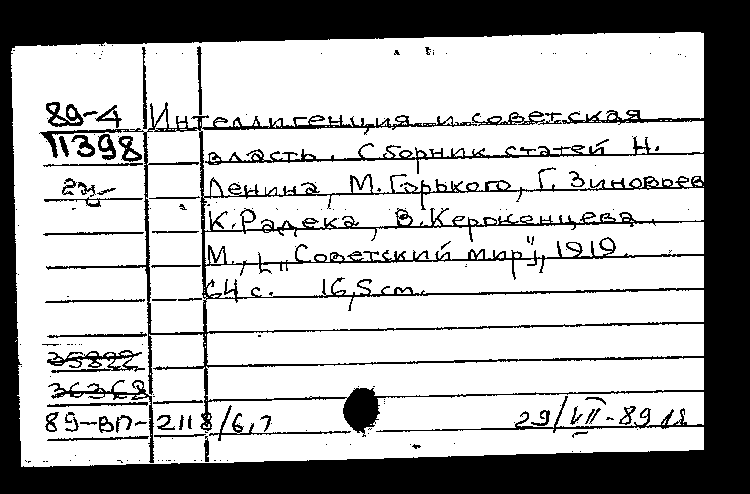 89-4 Интеллигенция и советская
11398 власть. Сборник статей Н.
2 эк Ленина, М. Горького, Г. Зиновьев
К. Радека, В. Керженцева.
М., [„Советский мир"], 1919.
64 с. 16,5 cm.
35822
36368
89-ВП-2118/6,7 29/VII-89